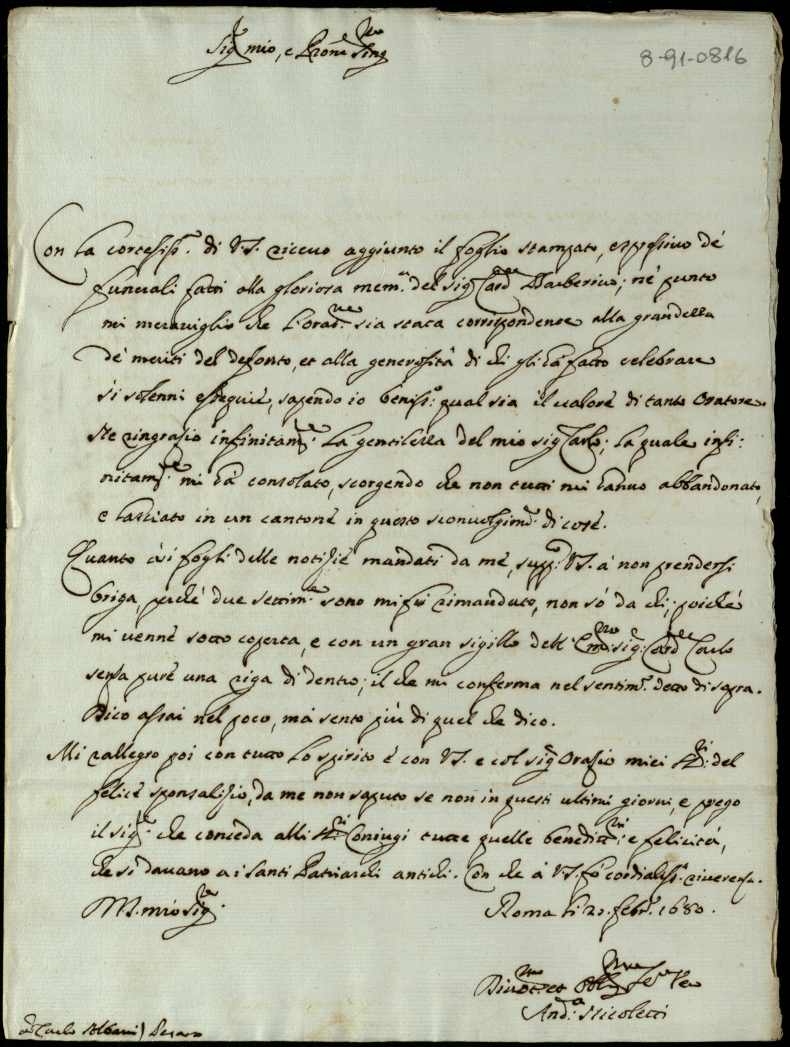 Sig.r mio, e Pron.e Sing.mo
8-91-0816
Con la cortesiss.a di V.S. ricevo aggiunto il foglio stampato, espressivo de'
funerali fatti alla gloriosa mem.a del sig. Card.le Barberino; né punto
mi meraviglio che l'oraz.ne sia stata corrispondente alla grandezza
de' meriti del defonto, et alla generosità di chi gli hà fatto celebrare
sì solenni essequie, sapendo io beniss.o qual sia il valore di tanto Oratore.
Ne ringrazio infinitam.te la gentilezza del mio sig. Carlo; la quale infi:
nitam.te mi hà consolato, scorgendo che non tutti mi hanno abbandonato,
e lasciato in un cantone in questo sconvolgim.to di cose.
Quanto à i fogli delle notizie mandati da me, supp.co V.S. à non prendersi
briga, perché due settim.e sono mi fù rimandato, non sò da chi; poiché
mi venne sotto coperta, e con un gran sigillo dell' Em.mo sig. Card.le Carlo
senza pure una riga di dentro; il che mi conferma nel sentim.to detto di sopra.
Dico assai nel poco, mà sento più di quel che dico.
Mi rallegro poi con tutto lo spirito e con V.S. e col sig. Orazio miei SS.ri del
felice sponsalizio, da me non saputo se non in questi ultimi giorni, e prego
il sig.re che conceda alli SS.ri Coniugi tutte quelle benediz.ni e felicità,
che si davano a i santi Patriarchi antichi. Con che à V.S. fò cordialiss.a riverenza.
V.S. mio Sig.re
Roma li 21. febr.o 1680.
Divot.mo et Obblig.mo Ser.re Vero
And.a Nicoletti
S.r Carlo Albani) Pesaro